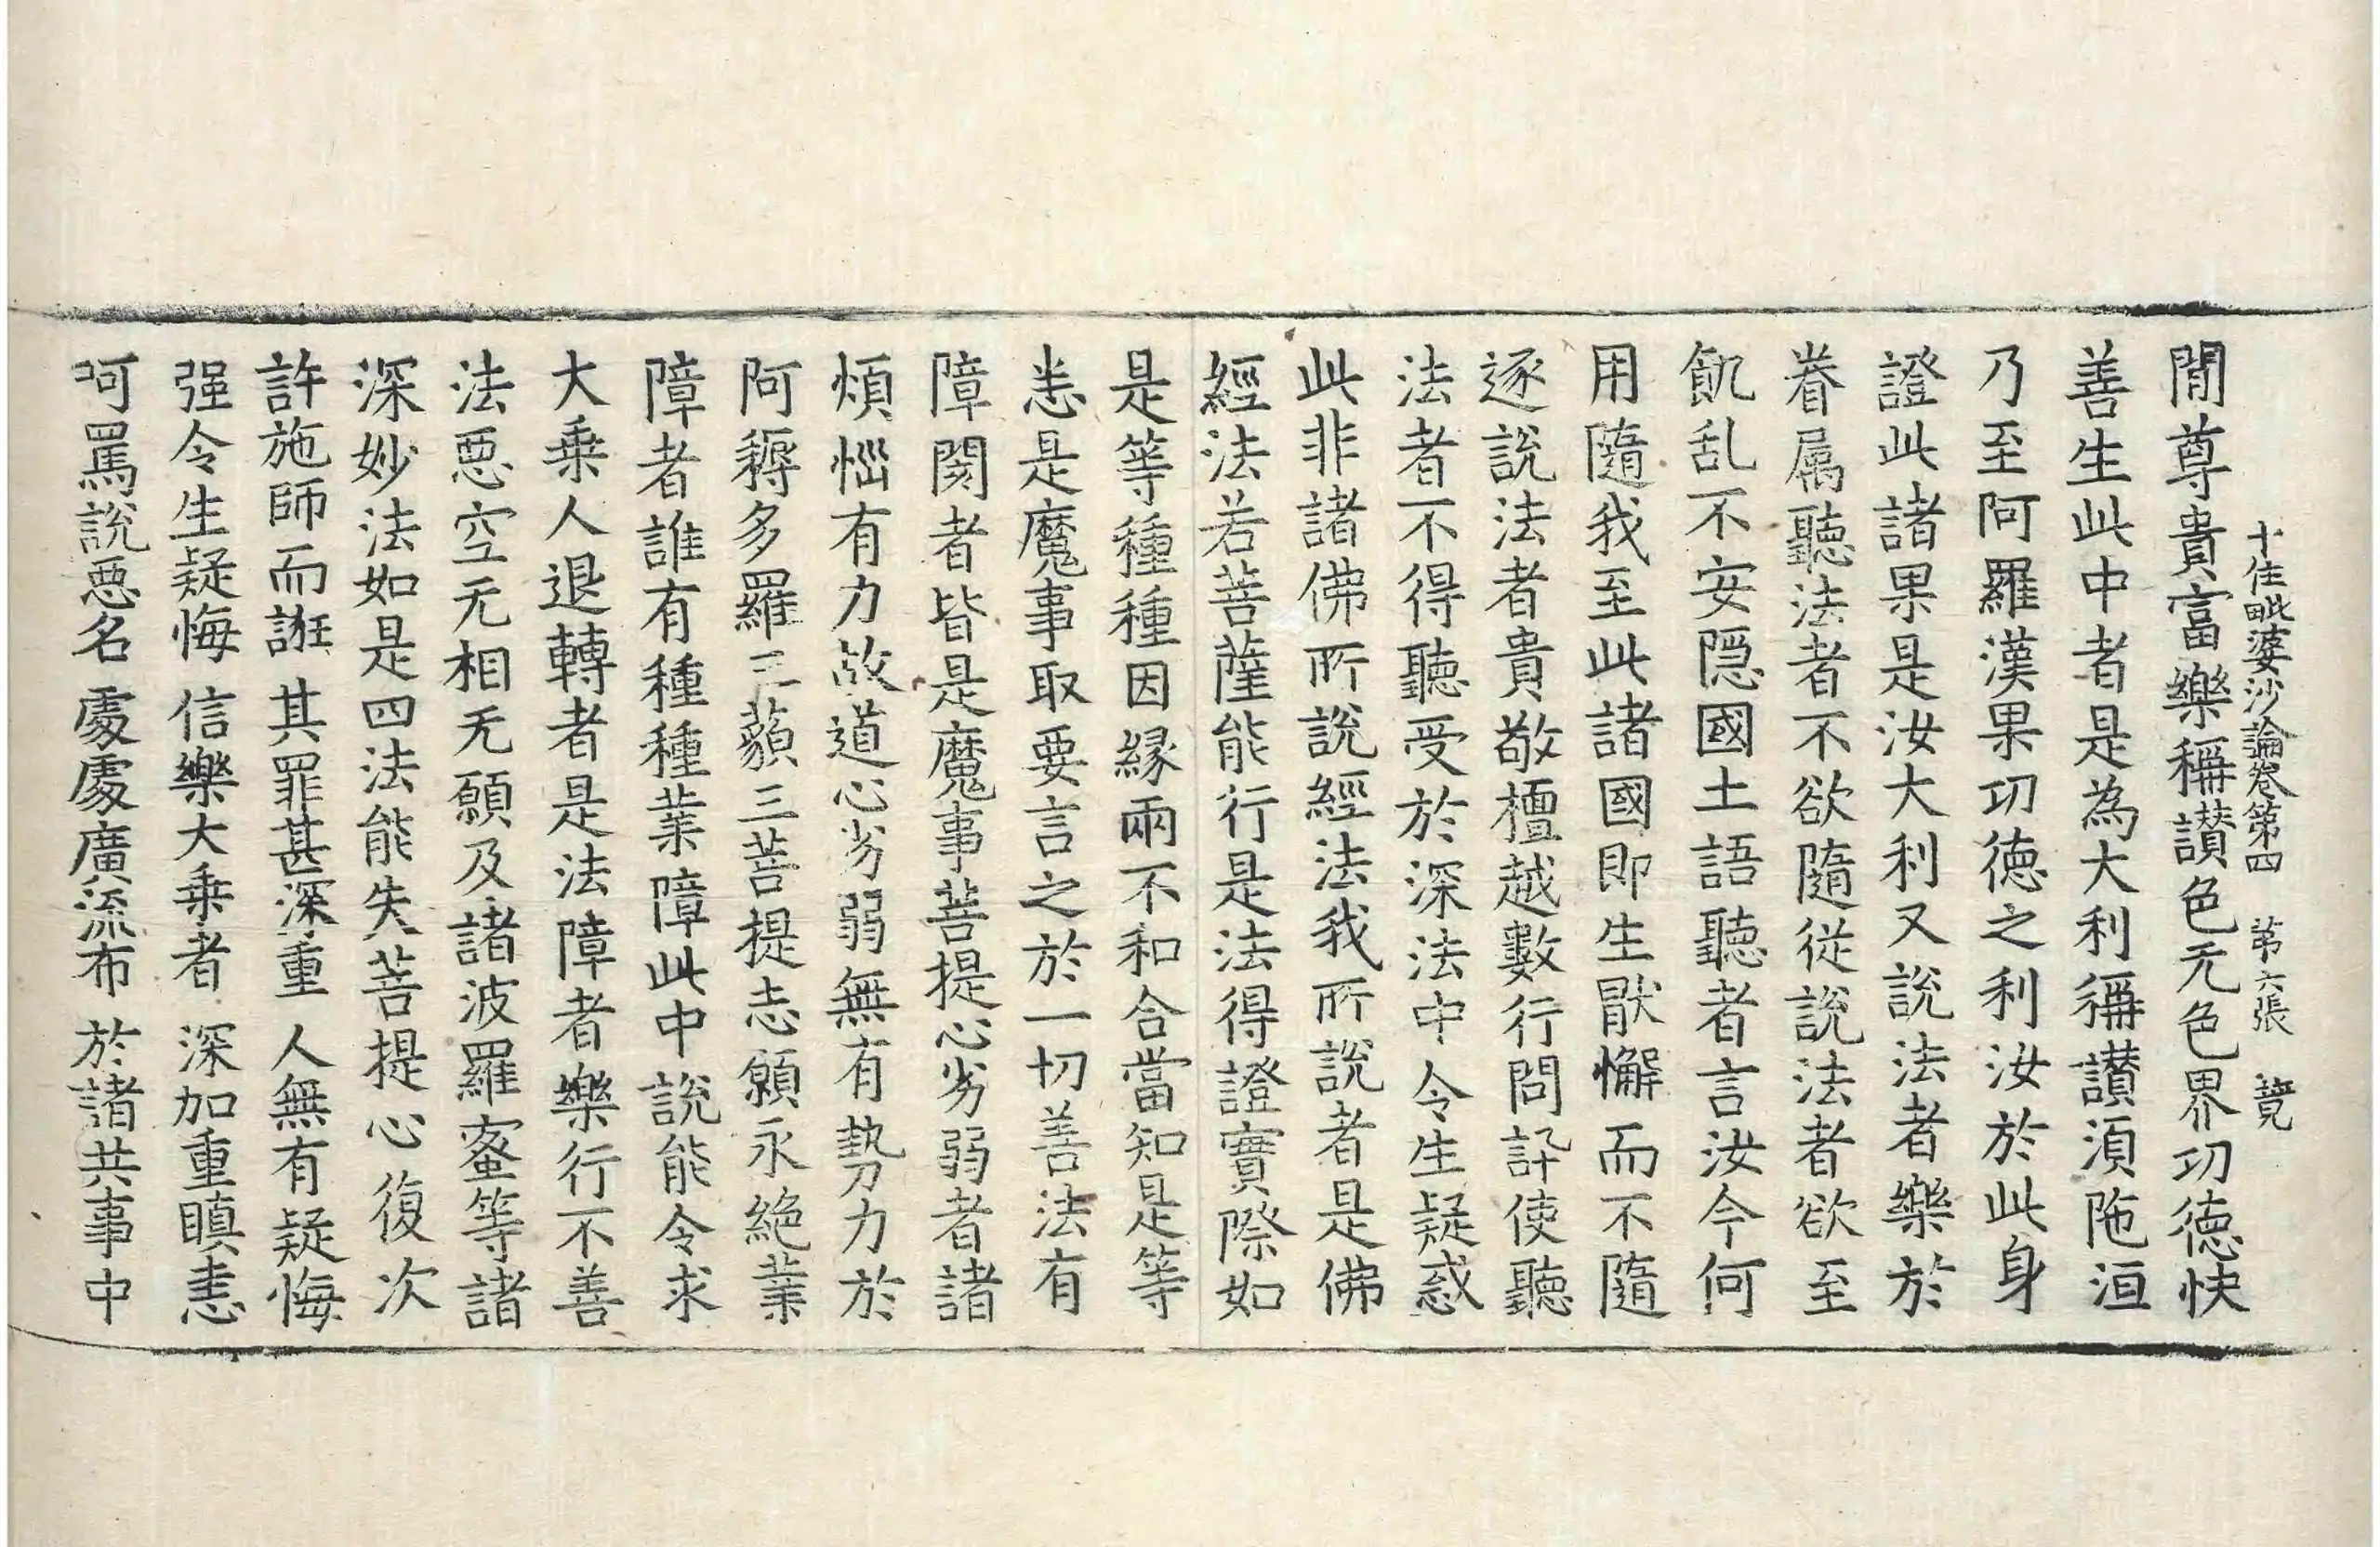 十住毗婆沙論卷第四　第六張　競
閒尊貴富樂稱讃色无色界功德快
善生此中者是為大利稱讃須陁洹
乃至阿羅漢果功德之利汝於此身
證此諸果是汝大利又說法者樂於
眷属聽法者不欲隨從說法者欲至
飢乱不安隱國土語聽者言汝今何
用隨我至此諸國即生猒懈而不隨
逐說法者貴敬檀越數行問訊使聽
法者不得聽受於深法中令生疑惑
此非諸佛所說經法我所說者是佛
經法若菩薩能行是法得證實際如
是等種種因縁兩不和合當知是等
恙是魔事取要言之於一切善法有
障閡者皆是魔事菩提心劣弱者諸
煩惱有力故道心劣弱無有勢力於
阿耨多羅三藐三菩提志願永絶業
障者誰有種種業障此中說能令求
大乗人退轉者是法障者樂行不善
法惡空无相无願及諸波羅蜜等諸
深妙法如是四法能失菩提心復次
許施師而誑　其罪甚深重　人無有疑悔
强令生疑悔　信樂大乗者　深加重瞋恚
呵罵說惡名　處處廣流布　於諸共事中